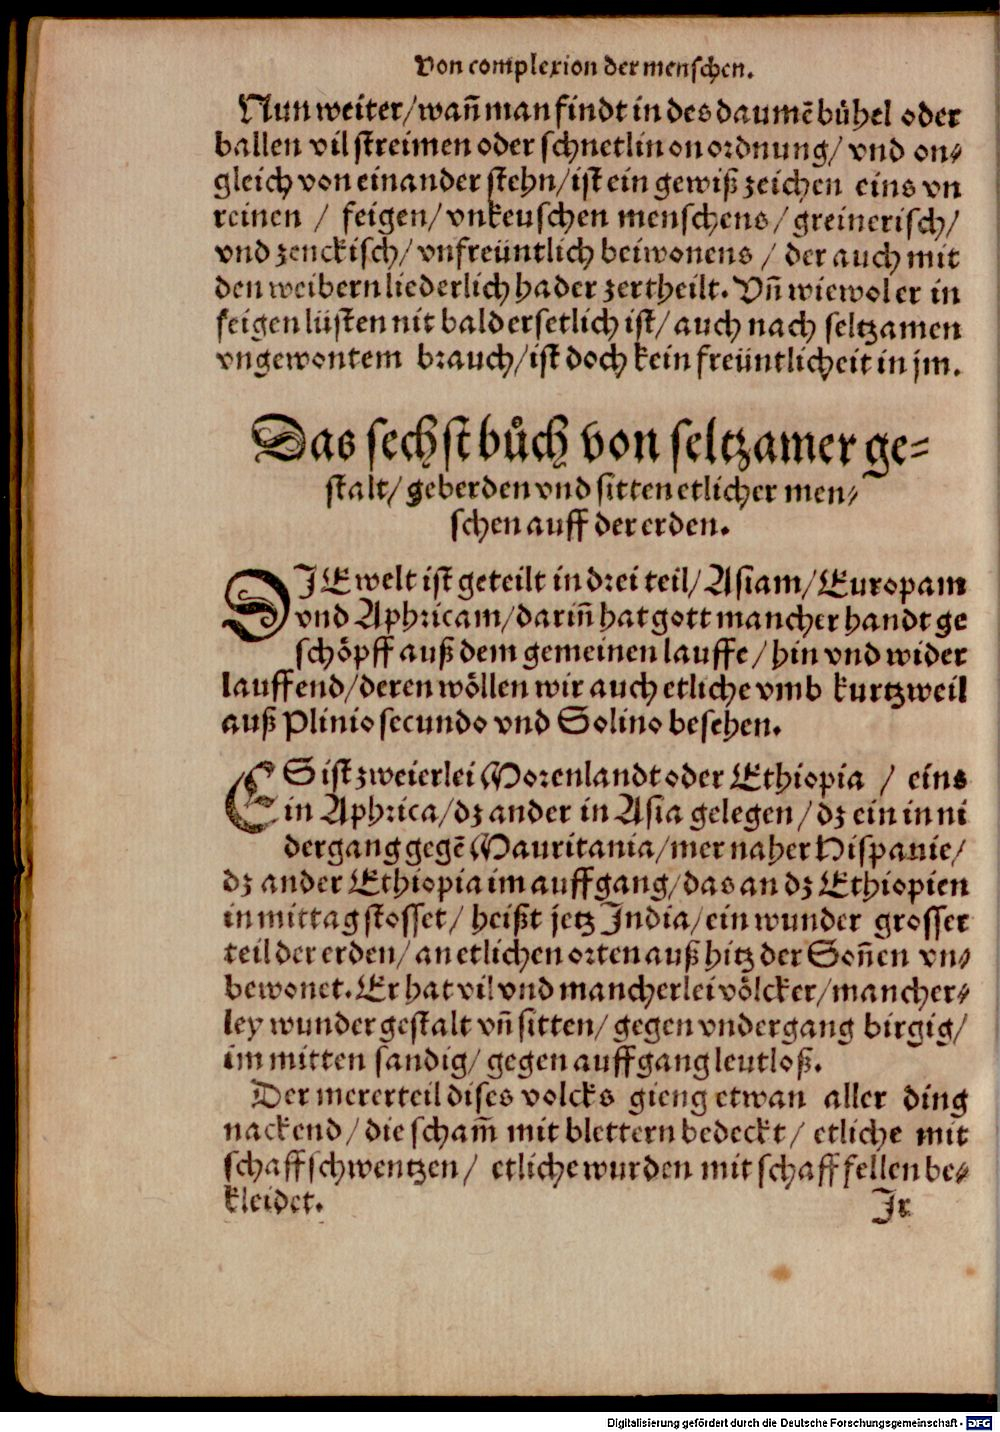 Von complexion der menschen.
Nun weiter/wañ man findt in des daumẽ bühel oder
ballen vil streimen oder schnetlin on ordnung/ vnd on⸗
gleich von einander stehn/ist ein gewiß zeichen eins vn
reinen / feigen/ vnkeuschen menschens/ greinerisch/
vnd zenckisch/ vnfreüntlich beiwonens / der auch mit
den weibern liederlich hader zertheilt. Vñ wiewol er in
feigen lüsten nit bald ersetlich ist/ auch nach seltzamen
vngewontem brauch/ist doch kein freüntlicheit in jm.
Das sechst bůch von seltzamer ge⸗
stalt/ geberden vnd sitten etlicher men⸗
schen auff der erden.
DIE welt ist geteilt in drei teil/ Asiam/ Europam
vnd Aphricam/dariñ hat gott mancher handt ge
schöpff auß dem gemeinen lauffe / hin vnd wider
lauffend/deren wöllen wir auch etliche vmb kurtzweil
auß Plinio secundo vnd Solino besehen.
ES ist zweierlei Morenlandt oder Ethiopia / eins
in Aphrica/dz ander in Asia gelegen / dz ein in ni
dergang gegẽ Mauritania/mer naher Hispanie/
dz ander Ethiopia im auffgang/das an dz Ethiopien
in mittag stosset/ heißt jetz India/ein wunder grosser
teil der erden/ an etlichen orten auß hitz der Soñen vn⸗
bewonet. Er hat vil vnd mancherlei völcker/mancher⸗
ley wunder gestalt vñ sitten/ gegen vndergang birgig/
im mitten sandig/ gegen auffgang leutloß.
Der mererteil dises volcks gieng etwan aller ding
nackend/die scham̃ mit blettern bedeckt/ etliche mit
schaffschwentzen/ etliche wurden mit schaff fellen be⸗
kleidet.
Ir
Digitalisierung gefördert durch die Deutsche Forschungsgemeinschaft - DFG